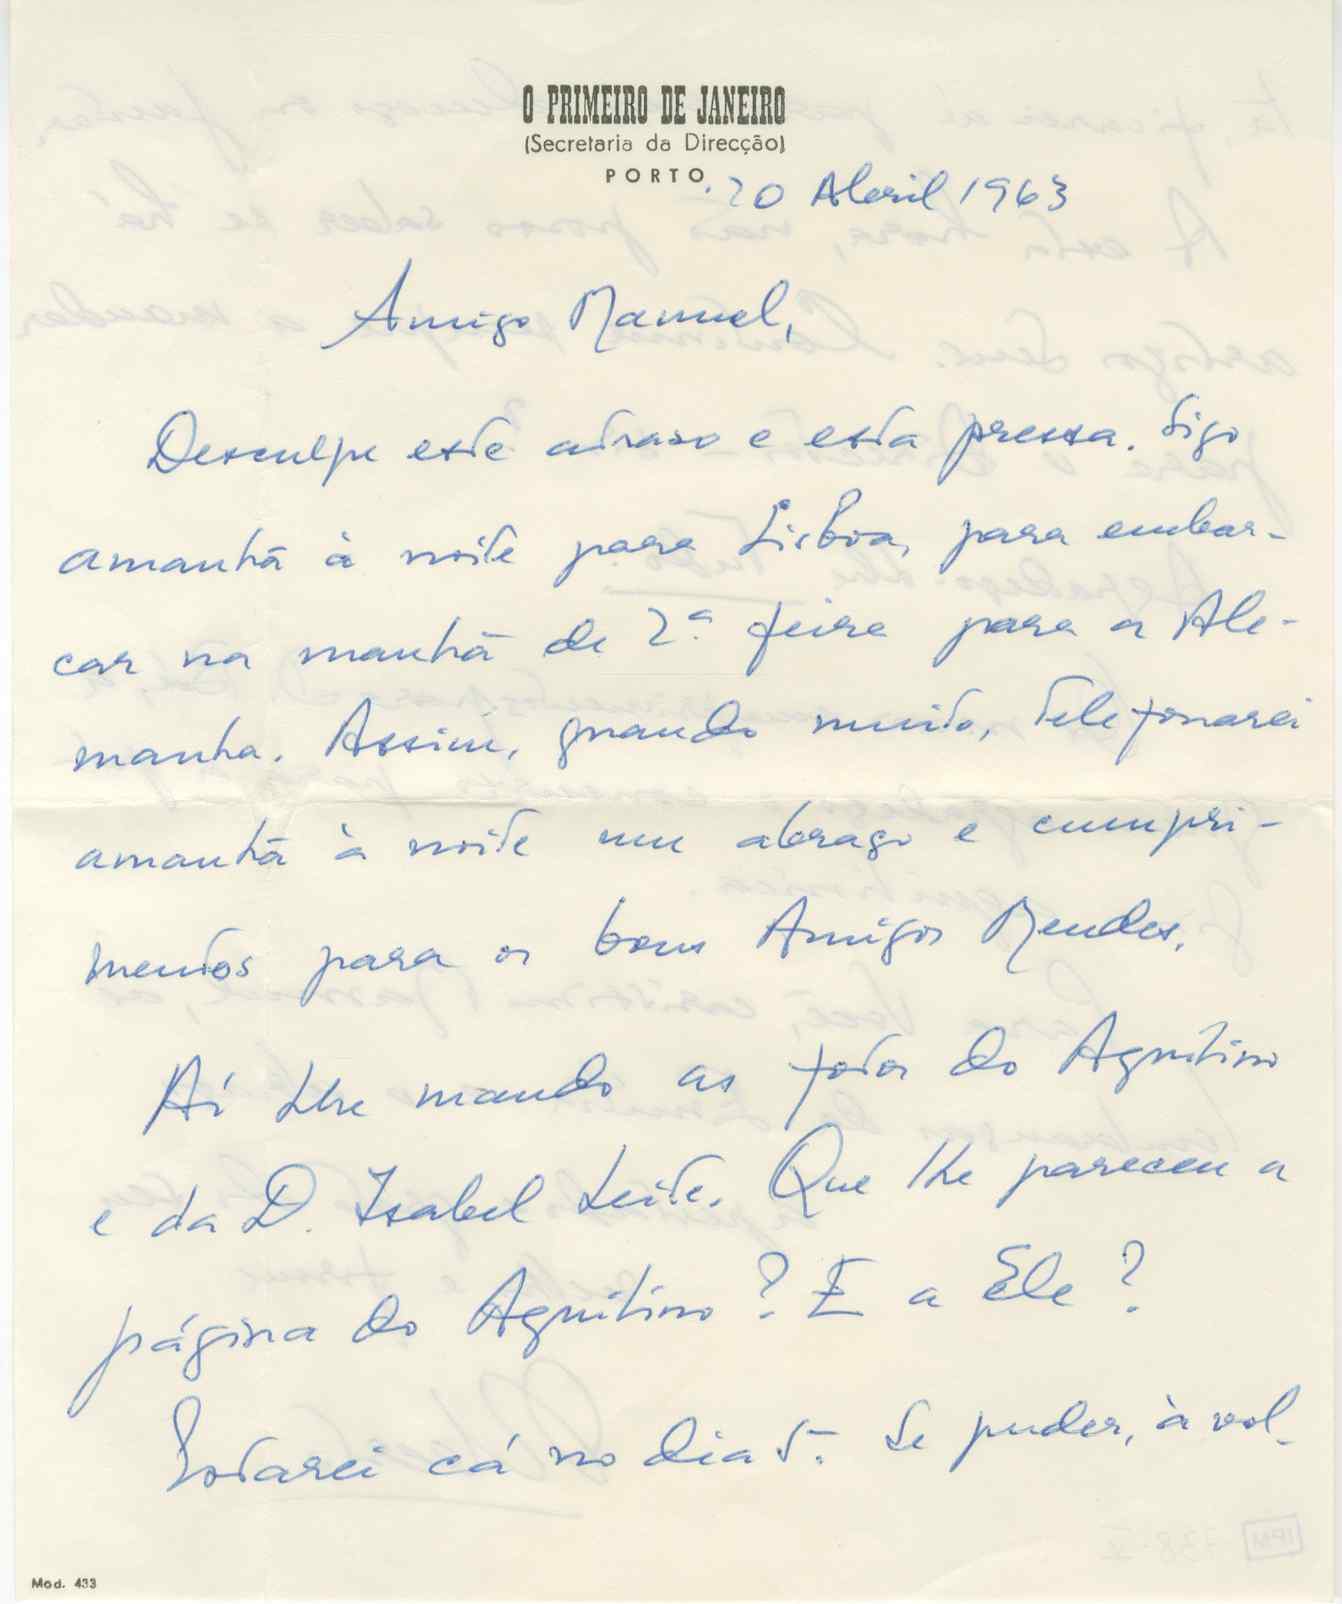 O PRIMEIRO DE JANEIRO
(Secretaria da Direcção)
PORTO
20 Abril 1963
Amigo Manuel,
Desculpe este atraso e esta pressa. Sigo
amanhã à noite para Lisboa, para embar-
car na manhã de 2ª feira para a Ale-
manha. Assim, quando muito, telefonarei
amanhã à noite um abraço e cumpri-
mentos para os bons Amigos Mendes.
Aí lhe mando as fotos do Aquilino
e da D. Isabel Leite. Que lhe pareceu a
página do Aquilino? E a Ele?
Estarei cá no dia 5. Se puder, à vol-
Mod. 433
IPM